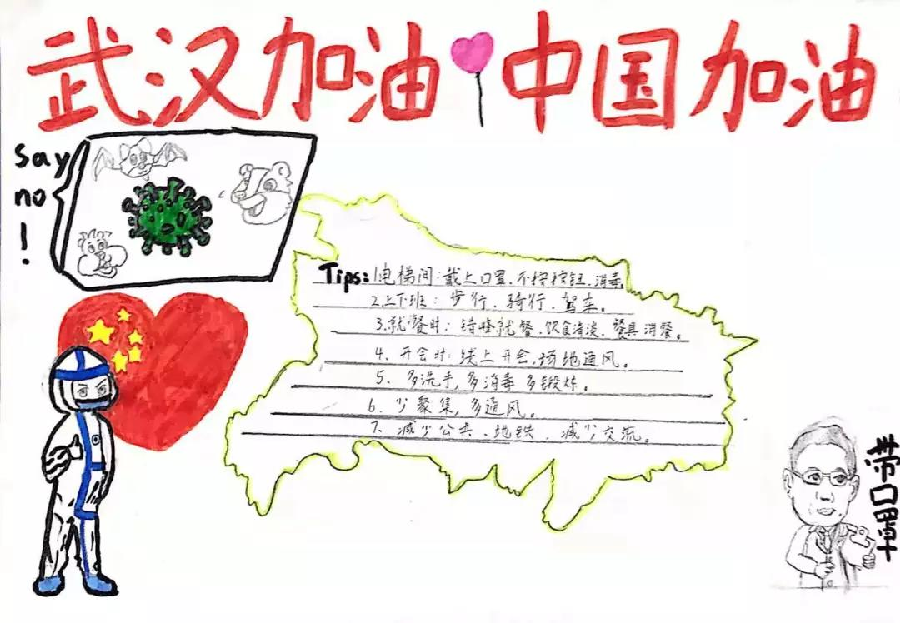 武汉加油 中国加油
Say
no
!
Tips: 1.电梯间:戴上口罩、不按按钮、消毒
2.上下班：步行、骑行、驾车。
3.就餐时：错峰就餐、饮食清淡、餐具消餐。
4. 开会时：线上开会、场地通风。
5. 多洗手，多消毒，多锻炼。
6. 少聚集，多通风。
7. 减少公共、地铁、减少交流。
带口罩